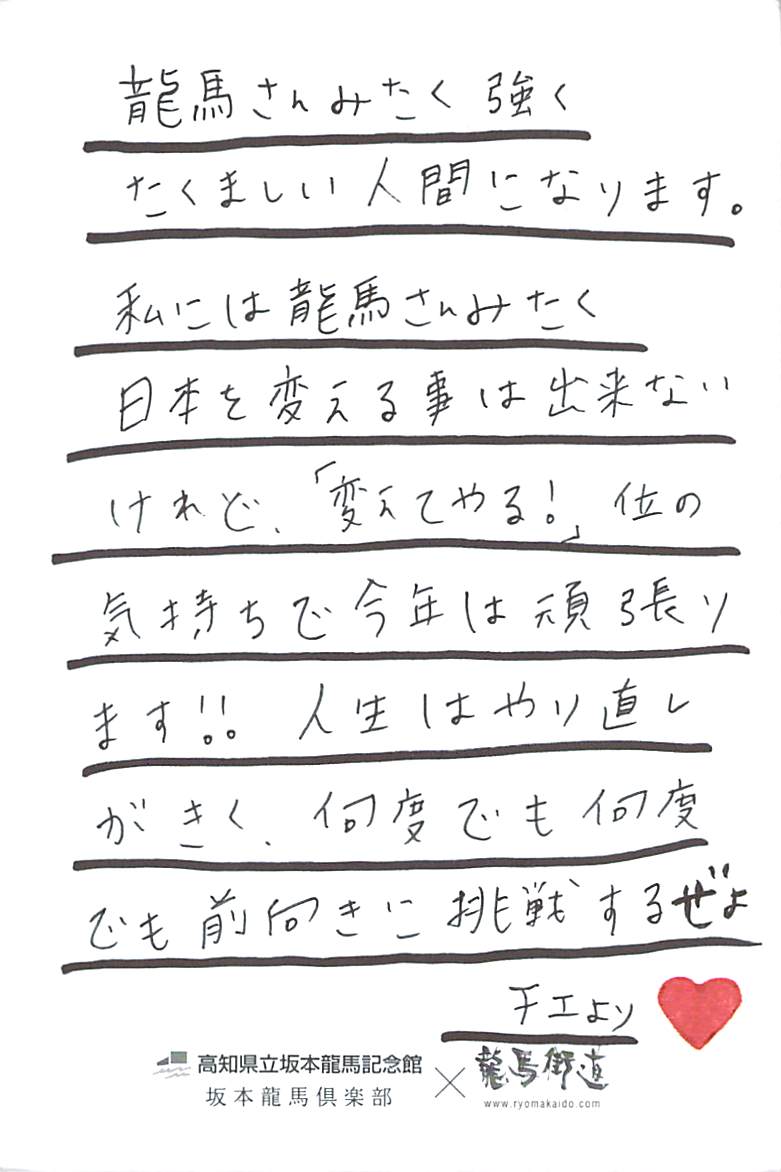 龍馬さんみたく強く
たくましい人間になります。
私には龍馬さんみたく
日本を変える事は出来ない
けれど、「変えてやる!」位の
気持ちで今年は頑張り
ます!! 人生はやり直し
がきく、何度でも何度
でも前向きに挑戦するぜよ
チエより
高知県立坂本龍馬記念館
坂本龍馬倶楽部
×
龍馬街道
www.ryomakaido.com